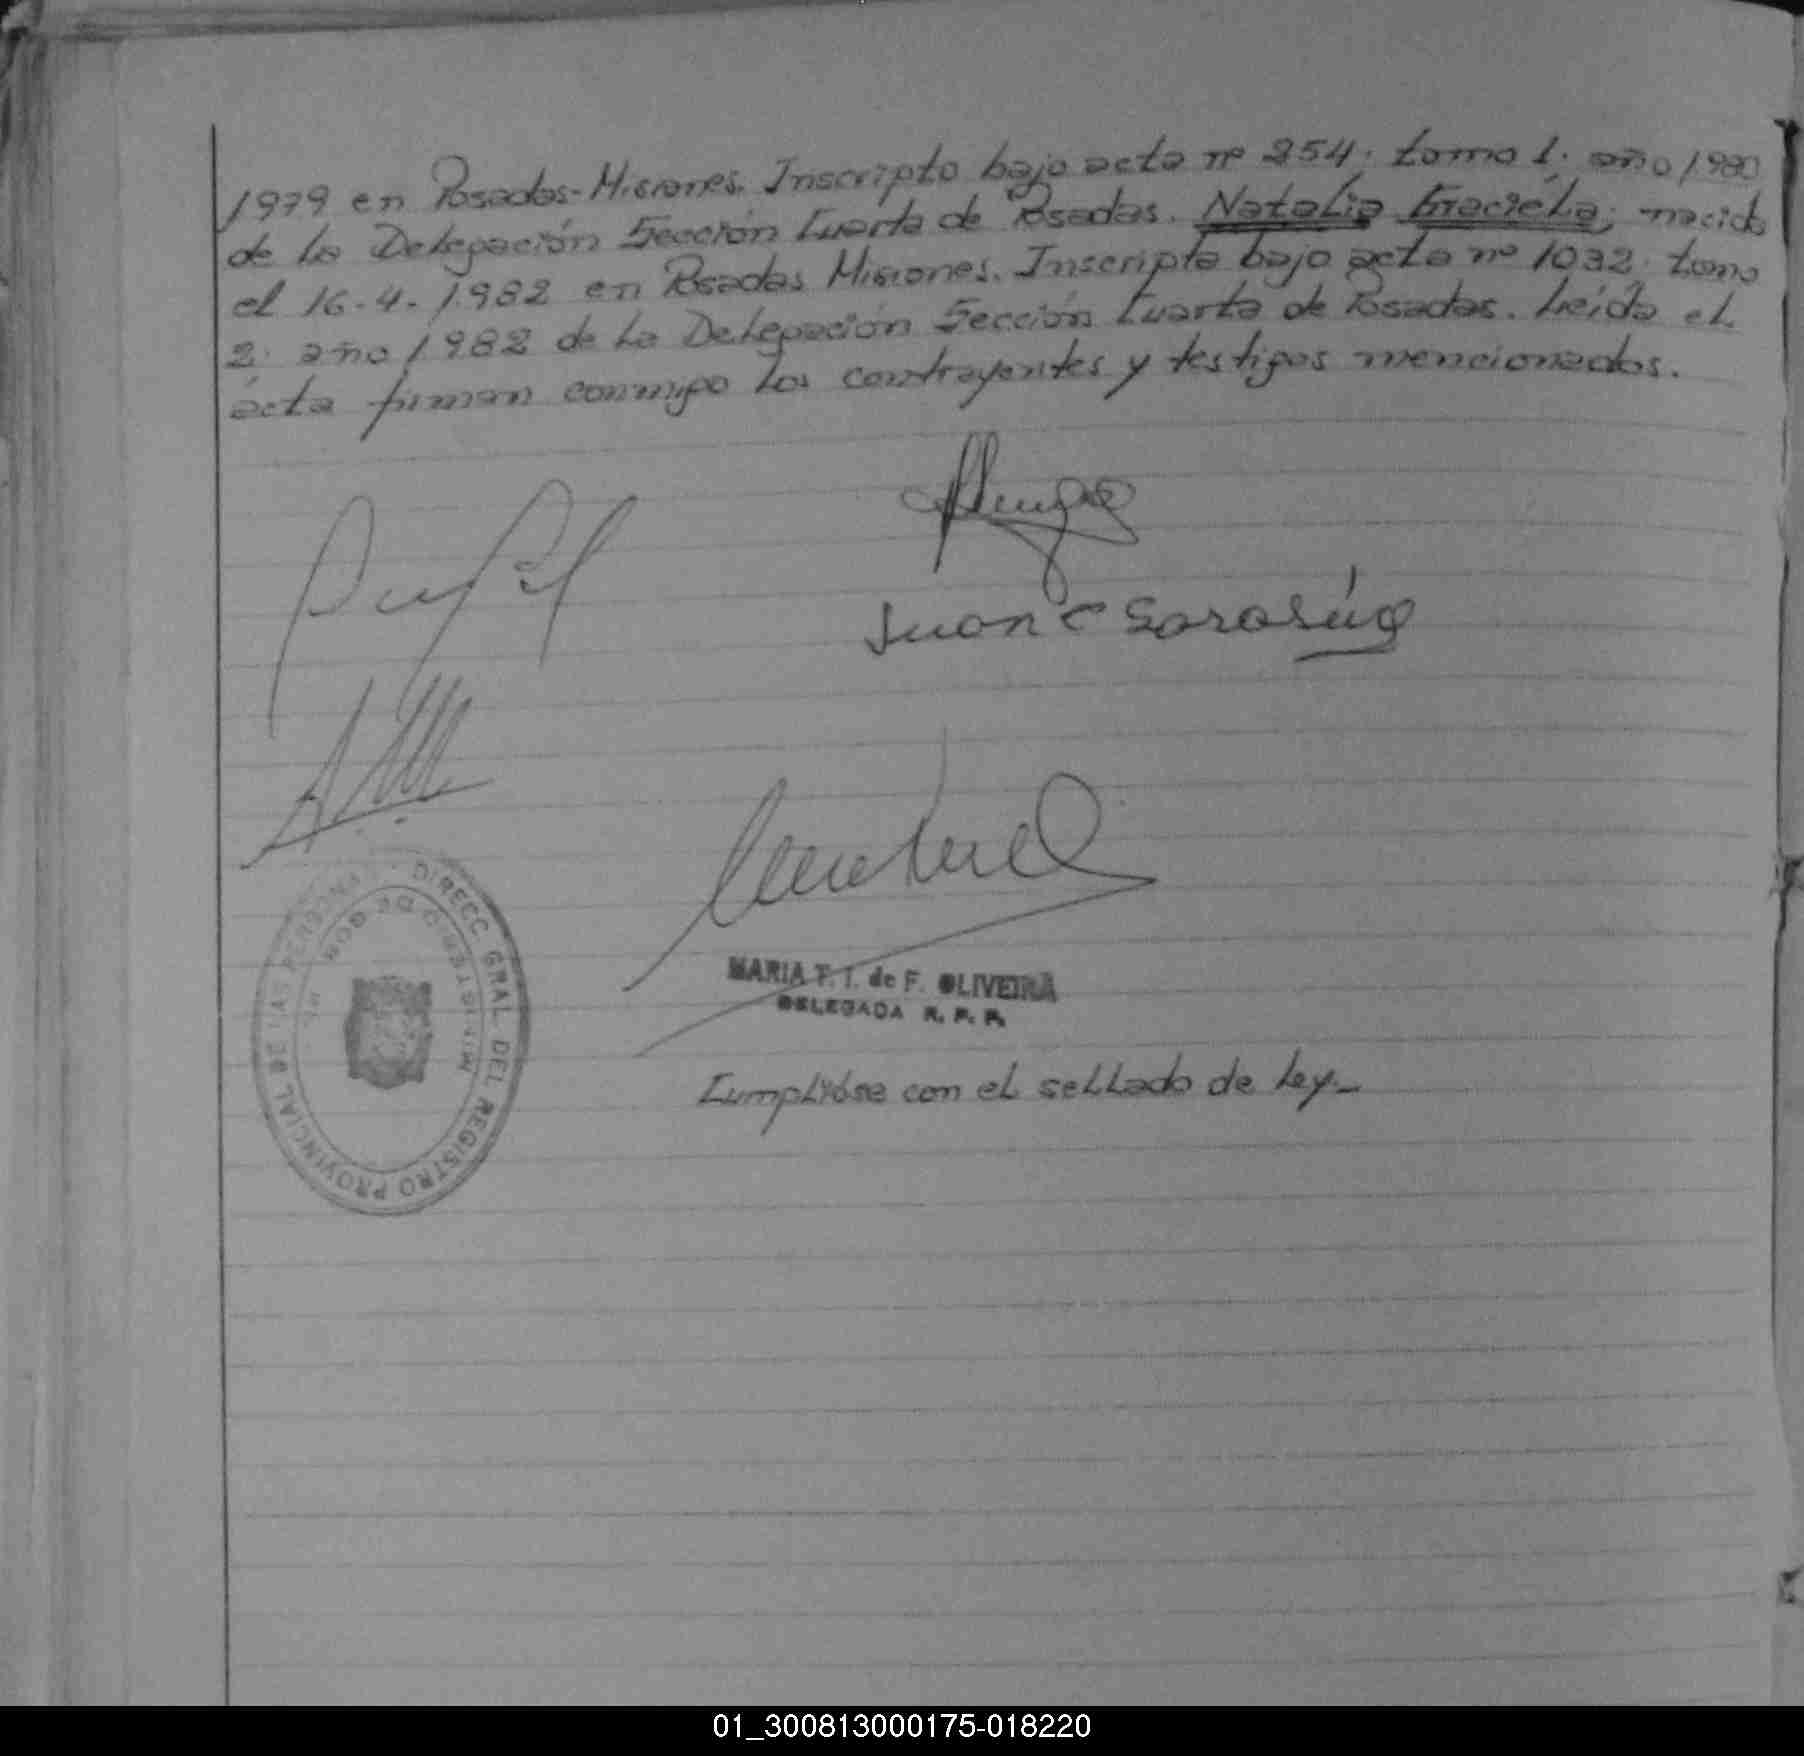 1979 en Posadas-Misiones. Inscripto bajo acta nº 254. tomo 1. año 1980
de la Delegación Sección Cuarta de Posadas. Natalia Graciela; nacida
el 16-4-1982 en Posadas Misiones. Inscripta bajo acta nº 1032. tomo
2. año 1982 de la Delegación Sección Cuarta de Posadas. Leída el
ácta firman conmigo los contrayentes y testigos mencionados.
Juan C
DIRECC. GRAL. DEL REGISTRO PROVINCIAL DE LAS PERSONAS
MINISTERIO DE GOB.
MARIA F. I. de F. OLIVEIRA
DELEGADA R. P. P.
Cumplióse con el sellado de ley._
01_300813000175-018220